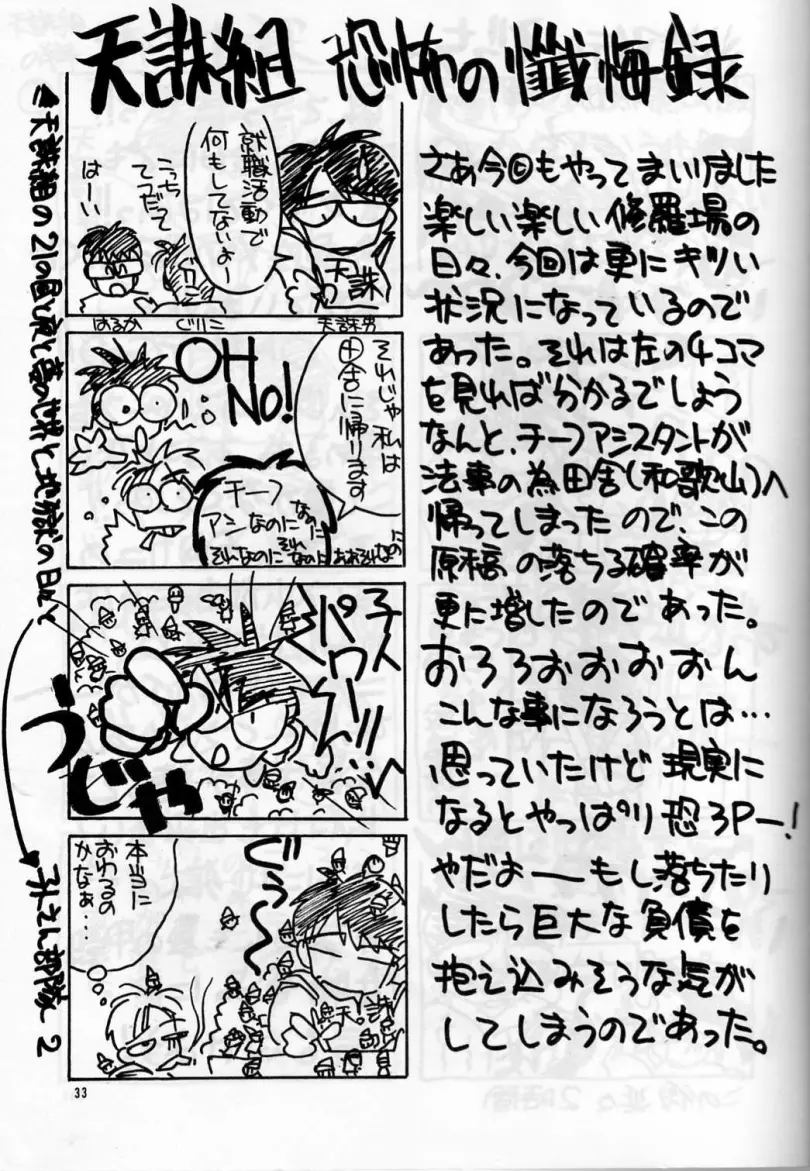 天誅組 恐怖の懺悔録
就職活動で
何もしてないよー
こっち
てつだって
はーい
天誅
はるか
ぐりこ
天誅男
それじゃ私は
田舎に帰ります
OH
NO!
チーフ
アシなのに
なのに
そんなのに
それなのに
おおそれなのに
チャ
パワー!!!
うじゃ
ぐぅ〜〜
本当に
おわるの
かなぁ…
天誅
天誅組の21の昼と夜と
地獄の日々
部隊 2
さあ今回もやってまいりました
楽しい楽しい修羅場の
日々、今回は更にキツい
状況になっているので
あった。それは左の4コマ
を見れば分かるでしょう
なんと、チーフアシスタントが
法事の為田舎(和歌山)へ
帰ってしまったので、この
原稿の落ちる確率が
更に増したのであった。
おろろおおおおん
こんな事になろうとは…
思っていたけど現実に
なるとやっぱり恐3Pー!
やだよーーもし落ちたり
したら巨大な負債を
抱え込みそうな気が
してしまうのであった。
33